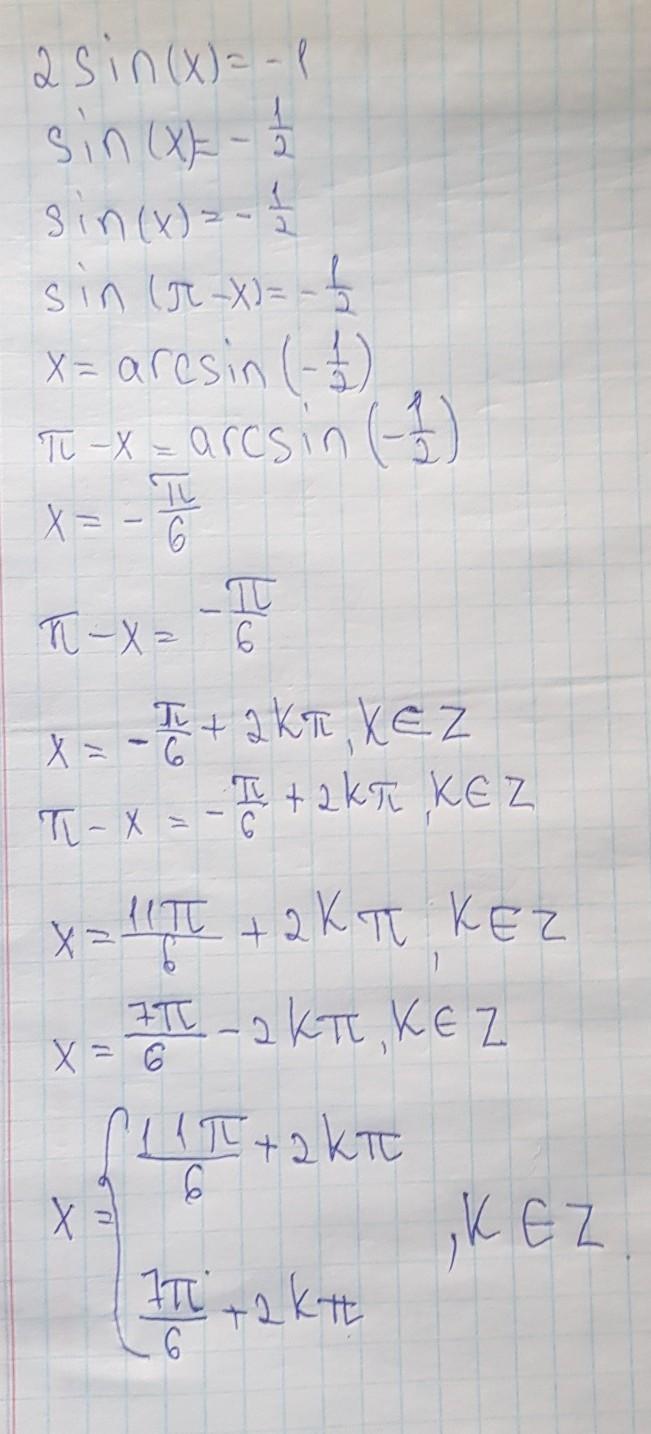 2 sin(x) = -1
sin(x) = - 1/2
sin(x) = - 1/2
sin(π - x) = - 1/2
x = arcsin(- 1/2)
π - x = arcsin(- 1/2)
x = - π/6
π - x = - π/6
x = - π/6 + 2kπ, k ∈ Z
π - x = - π/6 + 2kπ, k ∈ Z
x = 11π/6 + 2kπ, k ∈ Z
x = 7π/6 - 2kπ, k ∈ Z
x = { 11π/6 + 2kπ
7π/6 + 2kπ , k ∈ Z